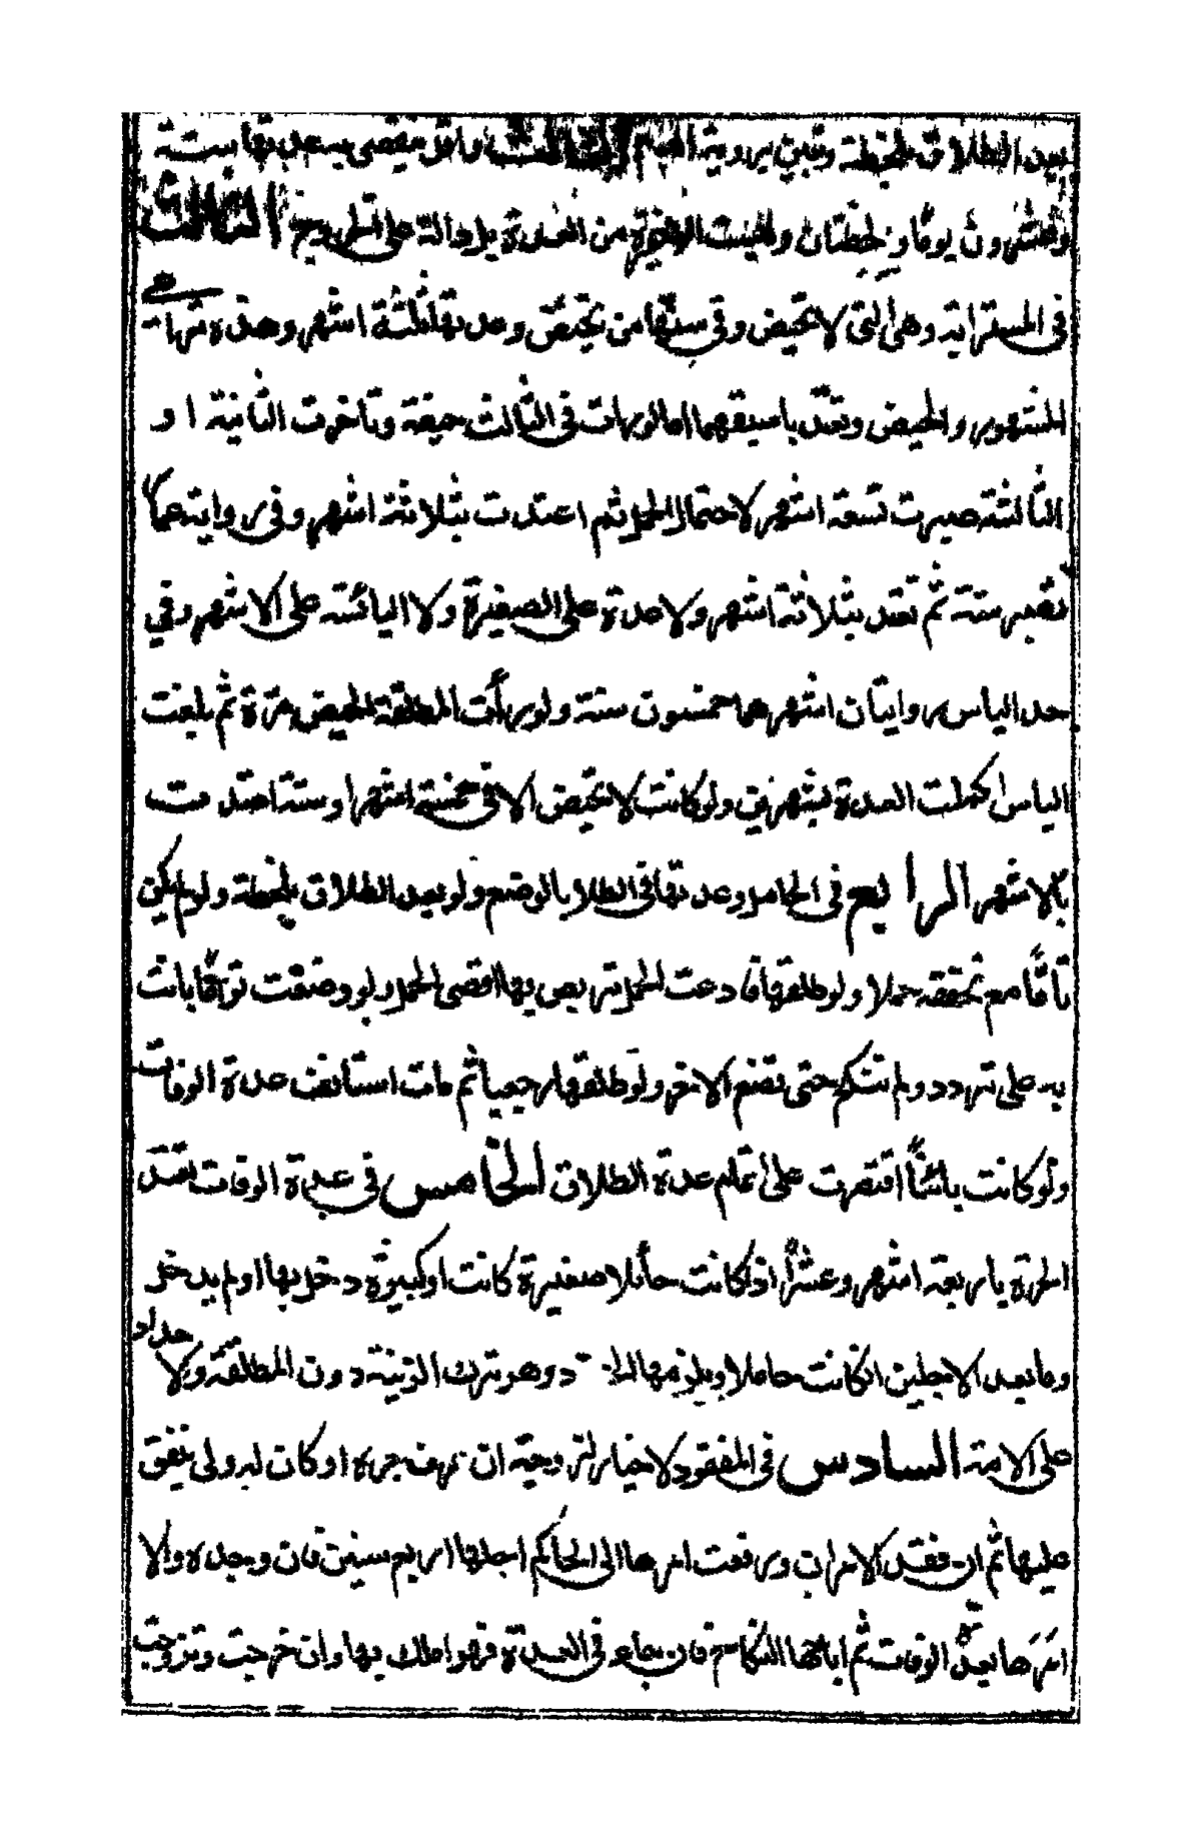 بعد الطلاق بلحظة وتبين برويته الدم الثالث واقل ما تنقضى به عدتها ستة
وعشرون يوما ولحظتان وليست الاخيرة من العدة بل دالة على الخروج الثالث
فى المسترابة وهى التى لا تحيض وفى سنها من تحيض وعدتها ثلثة اشهر وهذه تراعى
الشهور والحيض وتعتد باسبقهما اما لو رات فى الثالث حيضة وتاخرت الثانية او
الثالثة صبرت تسعة اشهر لاحتمال الحمل ثم اعتدت بثلاثة اشهر وفى رواية عمار
تصبر سنة ثم تعتد بثلاثة اشهر ولا عدة على الصغيرة ولا اليائسة على الاشهر وفي
حد الياس روايتان اشهرهما خمسون سنة ولو رأت المطلقة الحيض مرة ثم بلغت
الياس اكملت العدة بشهرين ولو كانت لا تحيض الا فى خمسة اشهر او ستة اعتدت
بالاشهر الرابع فى الحامل وعدتها فى الطلاق بالوضع ولو بعد الطلاق بلحظة ولو لم يكن
تاما مع تحققه حملا ولو طلقها فادعت الحمل تربص بها اقصى الحمل ولو وضعت توأما بانت
به على تردد ولم تنكح حتى تضع الاخر ولو طلقها رجعيا ثم مات استانفت عدة الوفات
ولو كانت بائنا اقتصرت على اتمام عدة الطلاق الخامس فى عدة الوفات تعتد
الحرة باربعة اشهر وعشرا اذا كانت حائلا صغيرة كانت او كبيرة دخل بها او لم يدخل
وبابعد الاجلين ان كانت حاملا ويلزمها الحداد وهو ترك الزينة دون المطلقة ولا حداد
على الامة السادس فى المفقود لا خيار لزوجته ان عرف خبره او كان له ولى ينفق
عليها ثم ان فقد الامران ورفعت امرها الى الحاكم اجلها اربع سنين فان وجده والا
امرها بعدة الوفات ثم اباحها النكاح فان جاء فى العدة فهو املك بها وان خرجت وتزوجت